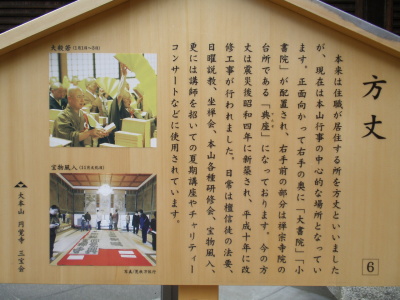 方丈
本来は住職が居住する所を方丈といいました
が、現在は本山行事の中心的な場所となってい
ます。正面向かって右手の奥に「大書院」「小
書院」が配置され、右手前の部分は禅宗寺院の
台所である「典座」になっております。今の方
丈は震災後昭和四年に新築され、平成十年に改
修工事が行われました。日常は檀信徒の法要、
日曜説教、坐禅会、本山各種研修会、宝物風入、
更には講師を招いての夏期講座やチャリティー
コンサートなどに使用されています。
6
大般若(1月1日〜3日)
宝物風入
大本山 円覚寺 三宝会